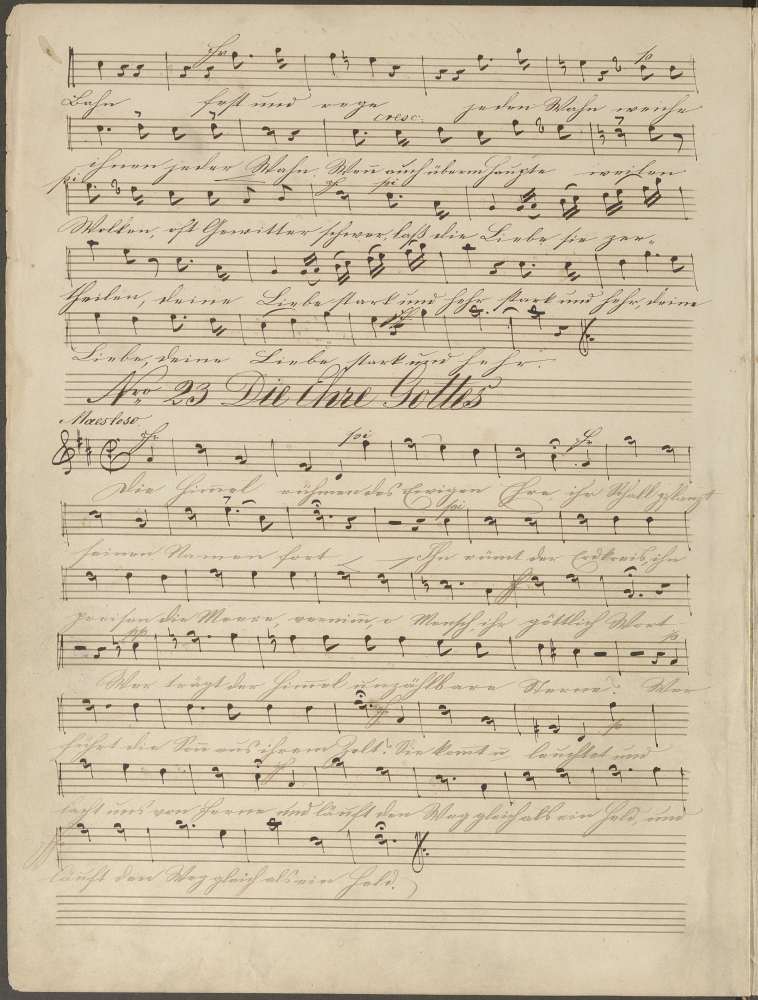 Bahn fest und rege jeden Wahn weiche
cresc:
ihnen jeder Wahn. Weñ auch überm Haupte weilen
Wolken, oft Gewitter schwer, laß die Liebe sie zer-
theilen, deine Liebe stark und hehr stark und hehr, deine
Liebe, deine Liebe stark und hehr.
Nro 23 Die Ehre Gottes
Maestoso.
Die Him̄el rühmen des Ewigen Ehre, ihr Schall pflanzt
seinen Namen fort Ihn rümt der Erdkreis, ihn
preisen die Meere, vernim̄, o Mensch, ihr göttlich Wort
pp
Wer trägt der Him̄el unzählbare Sterne? Wer
führt die Soñ aus ihrem Zelt? Sie kom̄t u leuchtet und
lacht uns von Ferne und läuft den Weg gleich als ein Held, und
läuft den Weg gleich als ein Held.